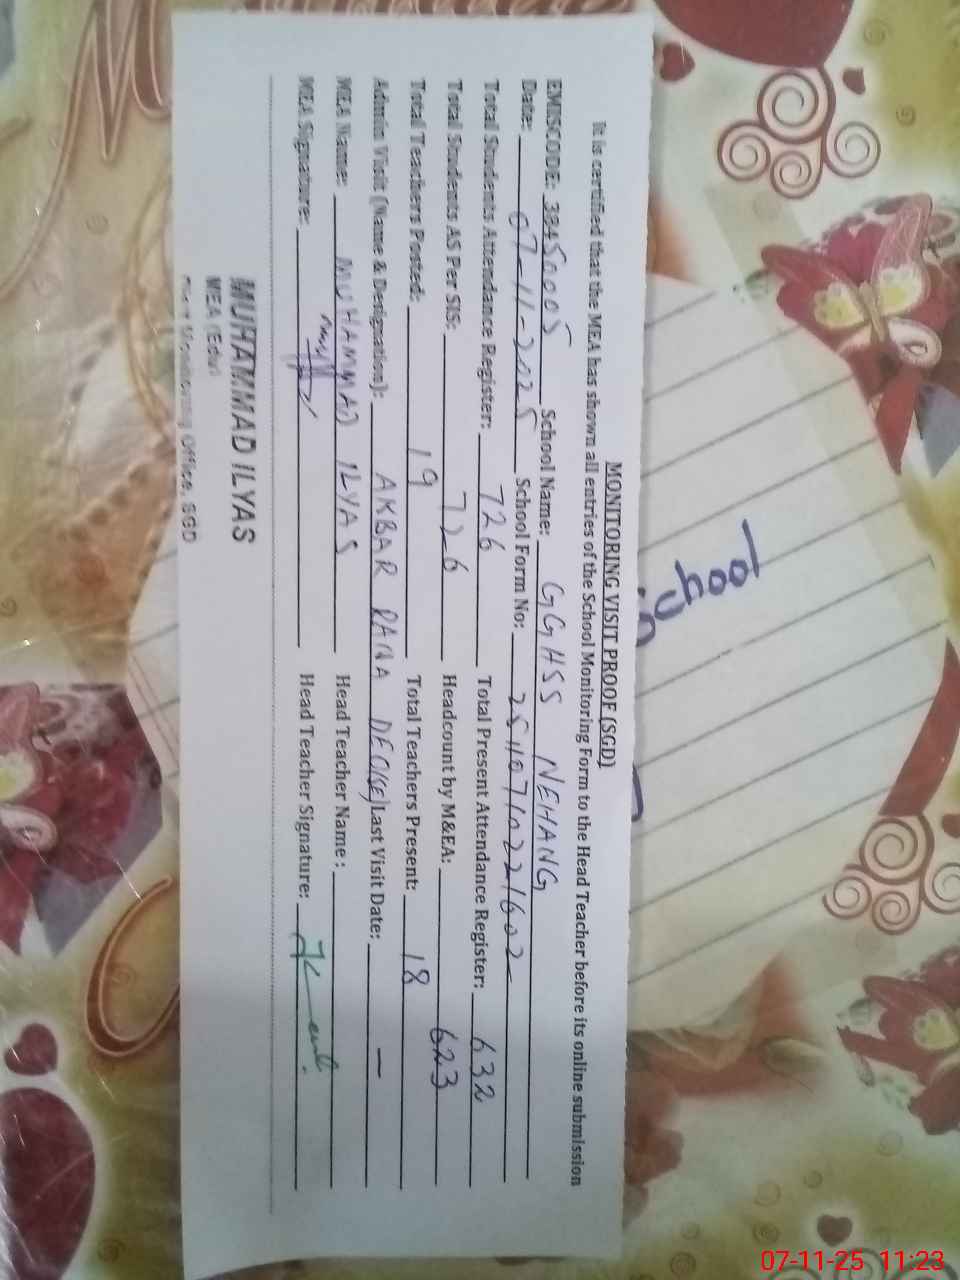 MONITORING VISIT PROOF (SGD)
It is certified that the MEA has shown all entries of the School Monitoring Form to the Head Teacher before its online submission
EMISCODE: 38450005 School Name: GGHSS NEHANG
Date: 07-11-2025 School Form No: 25110710221602
Total Students Attendance Register: 726 Total Present Attendance Register: 632
Total Students AS Per SIS: 726 Headcount by M&EA: 623
Total Teachers Posted: 19 Total Teachers Present: 18
Admin Visit (Name & Designation): AKBAR RANA DEO(SE) Last Visit Date: —
MEA Name: MUHAMMAD ILYAS Head Teacher Name:
MEA Signature: Head Teacher Signature:
MUHAMMAD ILYAS
MEA (Edu)
Monitoring Office, SGD
School
07-11-25 11:23